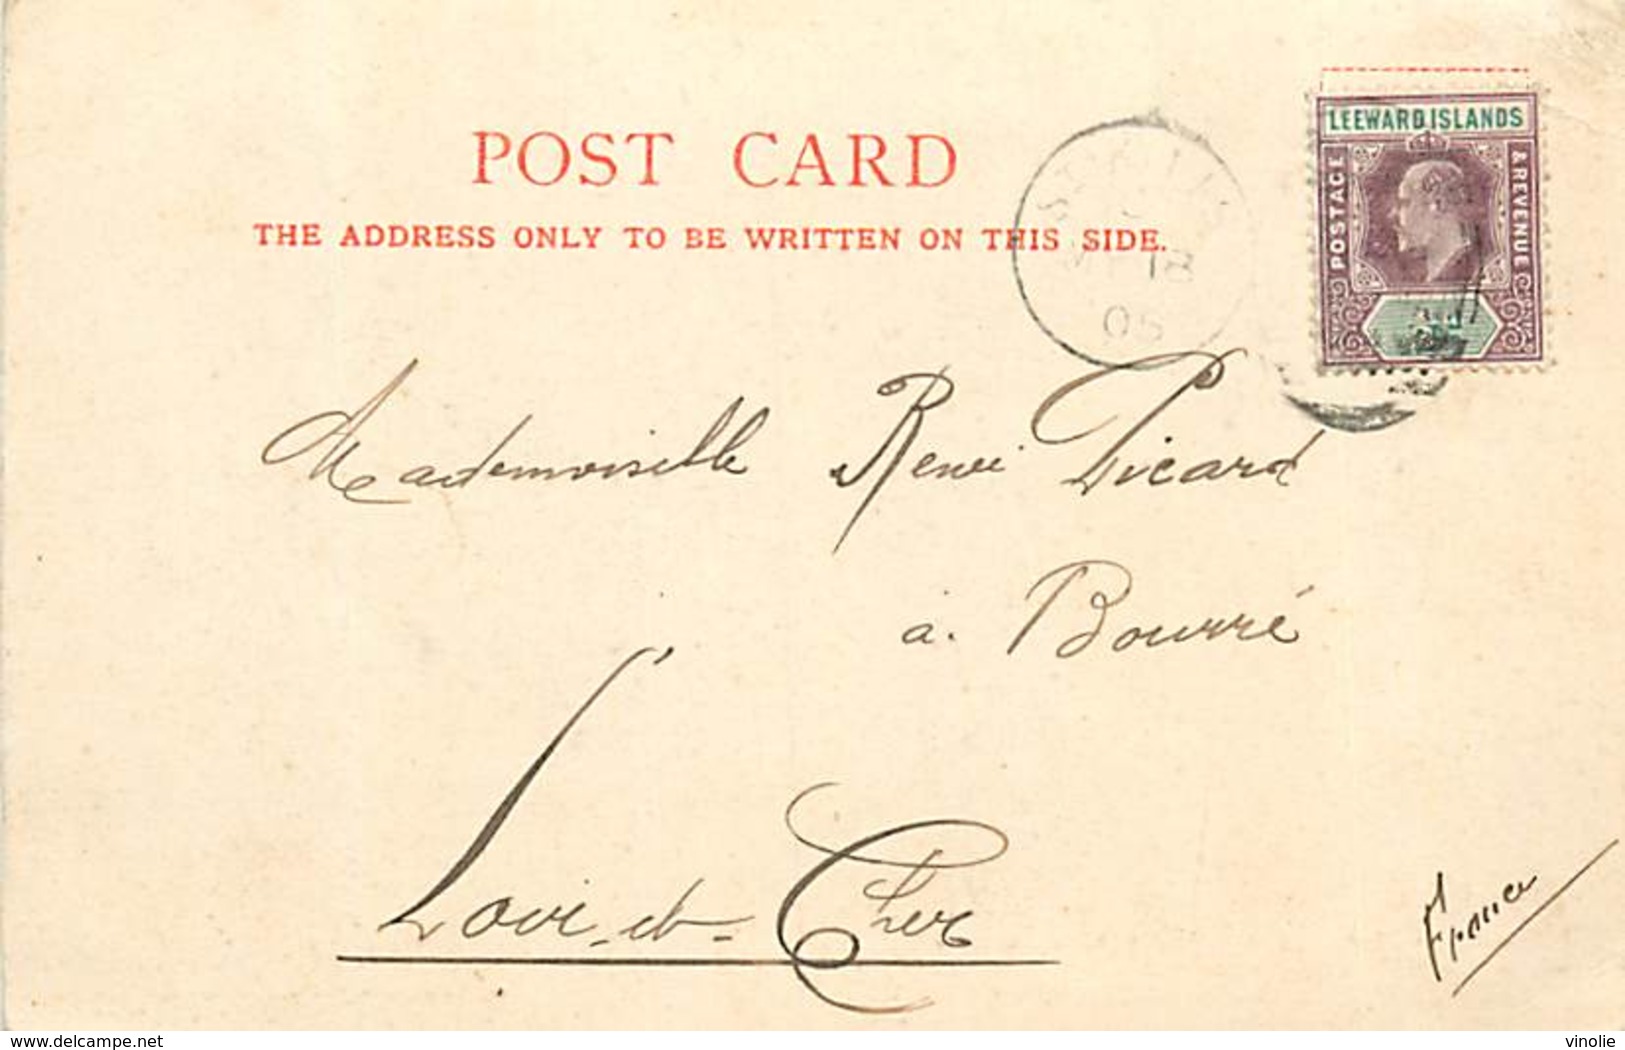 POST CARD
THE ADDRESS ONLY TO BE WRITTEN ON THIS SIDE.
18
05
LEEWARD ISLANDS
POSTAGE
& REVENUE
Mademoiselle Renée Picard
à. Bourré
Loir-et-Cher
France
delcampe.net
vinolie